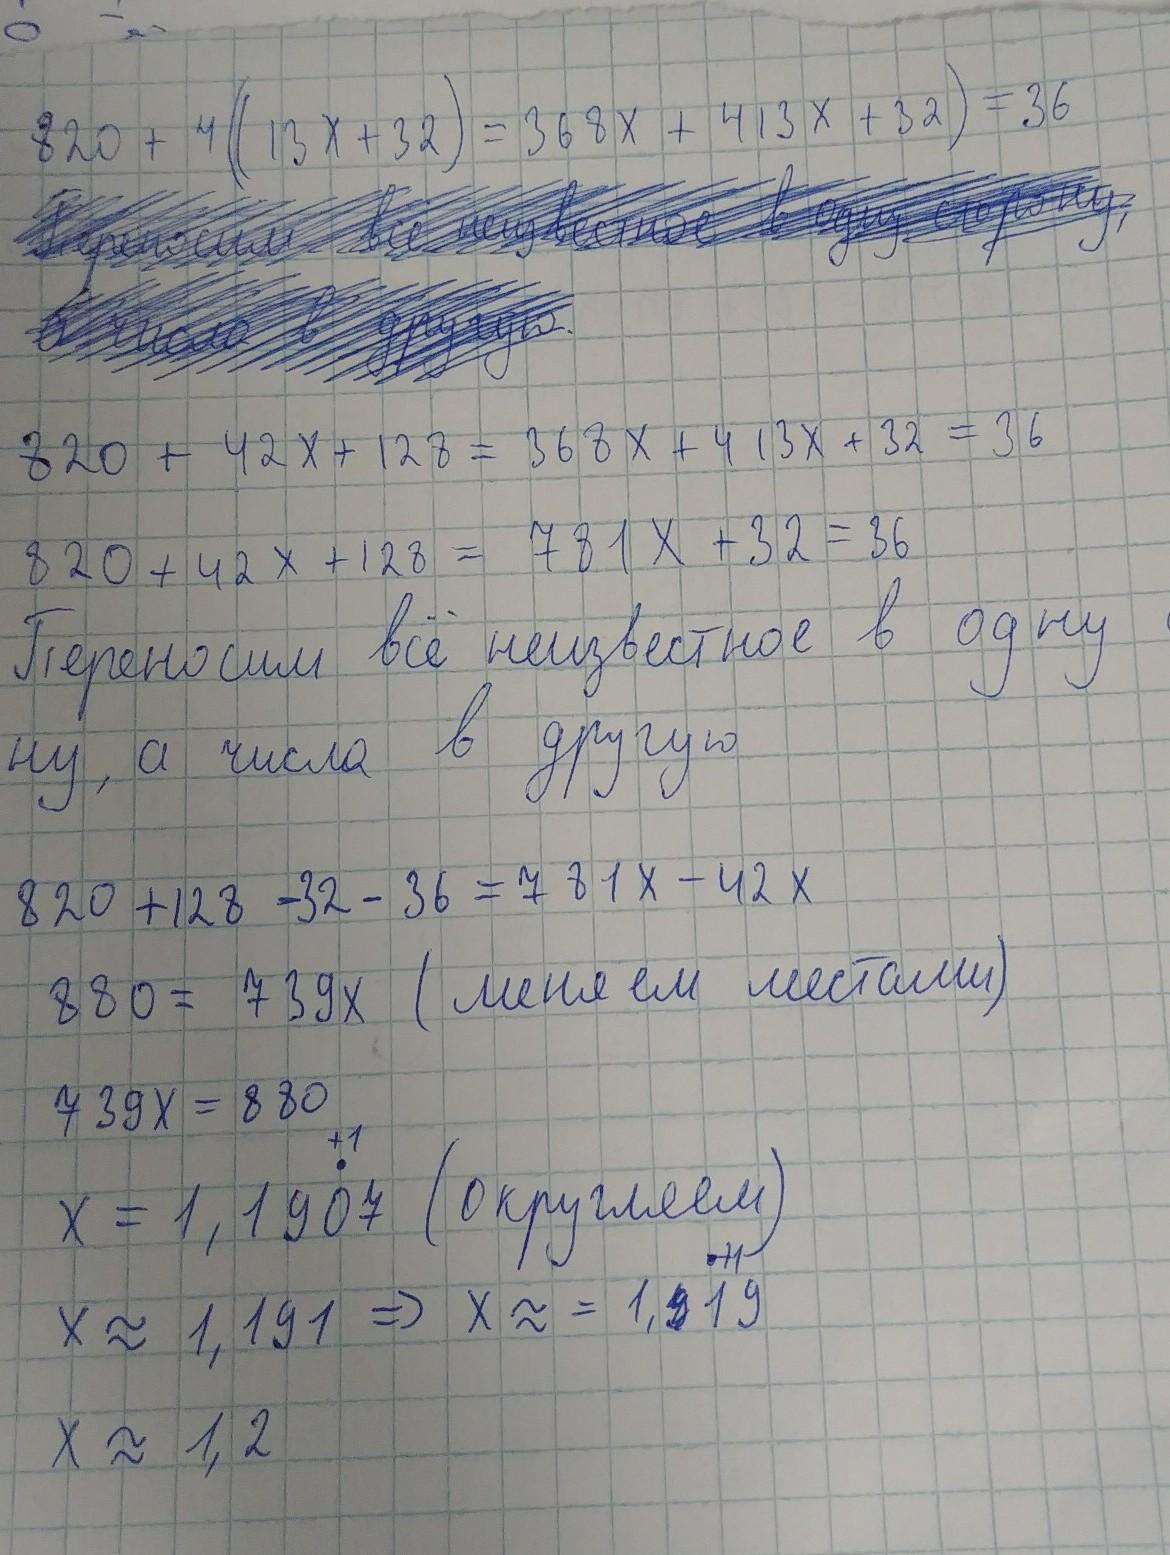 820 + 4((13x+32)=368x + 413x +32)=36
Переносим всё неизвестное в одну сторону,
а число в другую.
820 + 42x+128= 368x+413x+32 =36
820+42x+128= 781x+32=36
Переносим всё неизвестное в одну
ну, а числа в другую
820+128-32-36=781x-42x
880= 739x (меняем местами)
739x=880
+1
x=1,1907 (округляем)
+1
x≈ 1,191 => x≈ = 1,19
x≈ 1,2